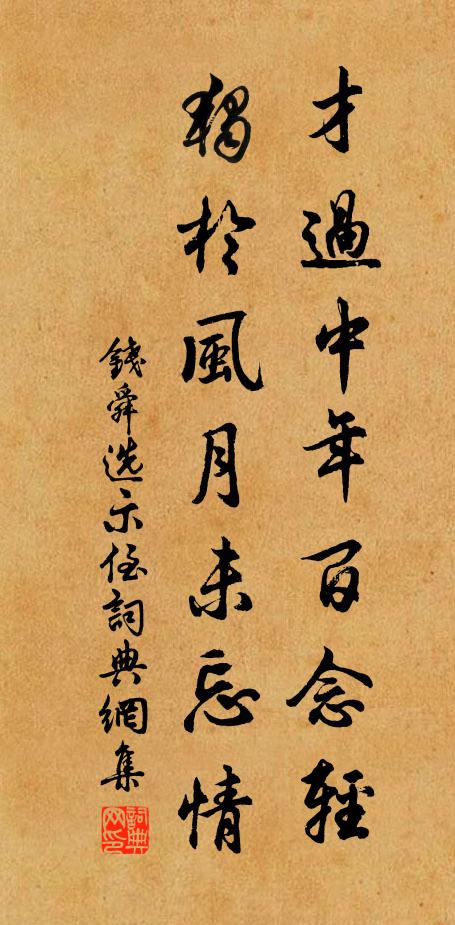 才過中年百念輕
獨於風月未忘情
錢舜選示侄詞典網集
詞典網印